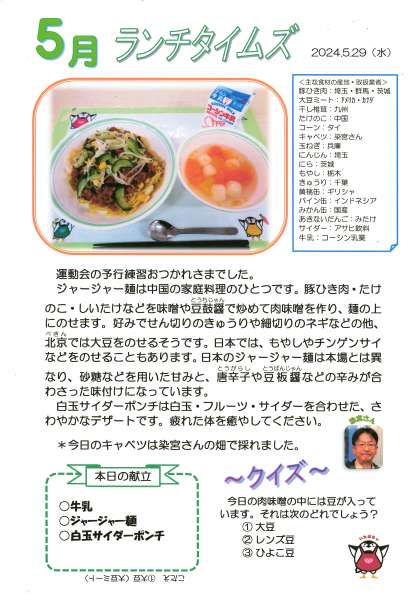 5月 ランチタイムズ 2024.5.29（水）
＜主な食材の産地・取扱業者＞
豚ひき肉：埼玉・群馬・茨城
大豆ミート：アメリカ・カナダ
干し椎茸：九州
たけのこ：中国
コーン：タイ
キャベツ：染宮さん
玉ねぎ：兵庫
にんじん：埼玉
にら：茨城
もやし：栃木
きゅうり：千葉
黄桃缶：ギリシャ
パイン缶：インドネシア
みかん缶：国産
あきないだんご：みたけ
サイダー：アサヒ飲料
牛乳：コーシン乳業
運動会の予行練習おつかれさまでした。
ジャージャー麺は中国の家庭料理のひとつです。豚ひき肉・たけ
のこ・しいたけなどを味噌や豆鼓醤で炒めて肉味噌を作り、麺の上
にのせます。好みでせん切りのきゅうりや細切りのネギなどの他、
北京では大豆をのせるそうです。日本では、もやしやチンゲンサイ
などをのせることもあります。日本のジャージャー麺は本場とは異
なり、砂糖などを用いた甘みと、唐辛子や豆板醤などの辛みが合
わさった味付けになっています。
白玉サイダーポンチは白玉・フルーツ・サイダーを合わせた、さ
わやかなデザートです。疲れた体を癒やしてください。
＊今日のキャベツは染宮さんの畑で採れました。
染宮さん
本日の献立
○牛乳
○ジャージャー麺
○白玉サイダーポンチ
～クイズ～
今日の肉味噌の中には豆が入って
います。それは次のどれでしょう？
① 大豆
② レンズ豆
③ ひよこ豆
こたえ ① 大豆（大豆ミート）